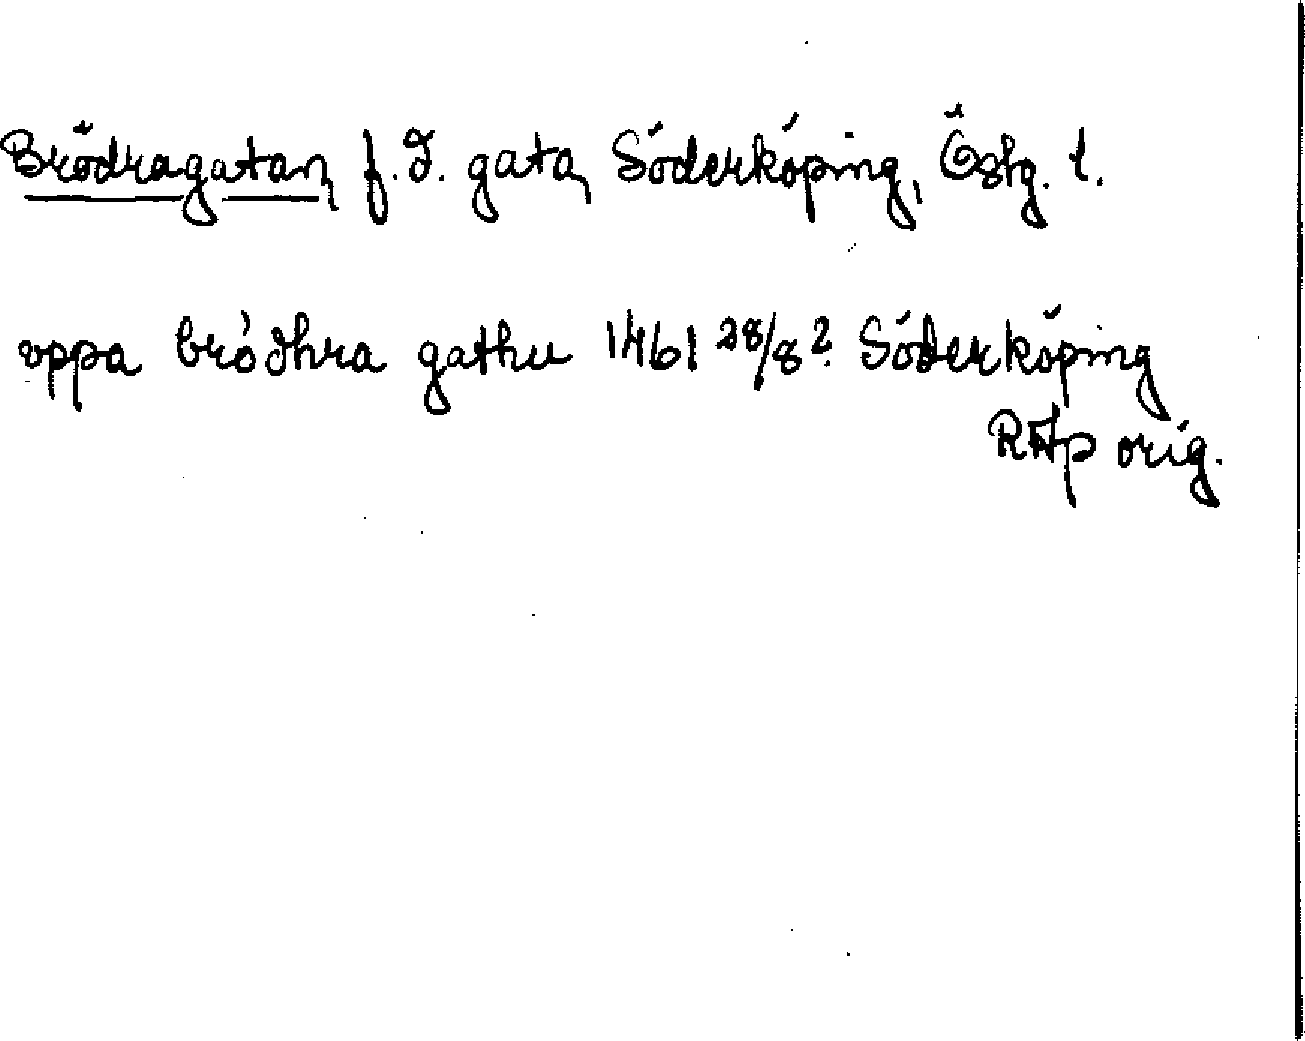 Brödragatan, f.d. gata, Söderköping, Östg. l.
vppa brödhra gathu 1461 28/8? Söderköping
RAp orig.